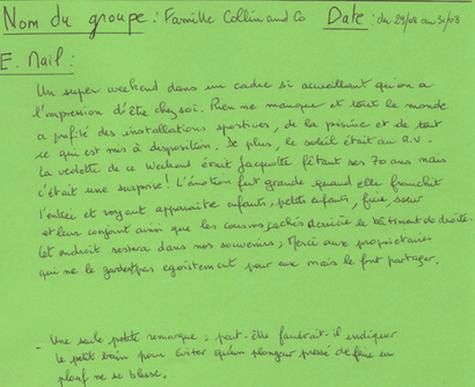 Nom du groupe : Famille Collin and Co Date : du 29/08 au 31/08
E. Mail :
Un super weekend dans un cadre si accueillant qu'on a
l'impression d'être chez soi. Rien ne manque et tout le monde
a profité des installations sportives, de la piscine et de tout
ce qui est mis à disposition. De plus, le soleil était au R.V.
La vedette de ce Weekend était Jacquotte fêtant ses 70 ans mais
c'était une surprise ! L'émotion fut grande quand elle franchit
l'entrée et voyant apparaître enfants, petits enfants, frère, soeur
et leur conjoint ainsi que les cousins cachés derrière le bâtiment de droite.
Cet endroit restera dans nos souvenirs, Merci aux propriétaires
qui ne le gardent pas egoistement pour eux mais le font partager.
- Une seule petite remarque : peut-être faudrait-il indiquer
le petit bain pour éviter qu'un plongeur pressé de faire un
plouf ne se blesse.